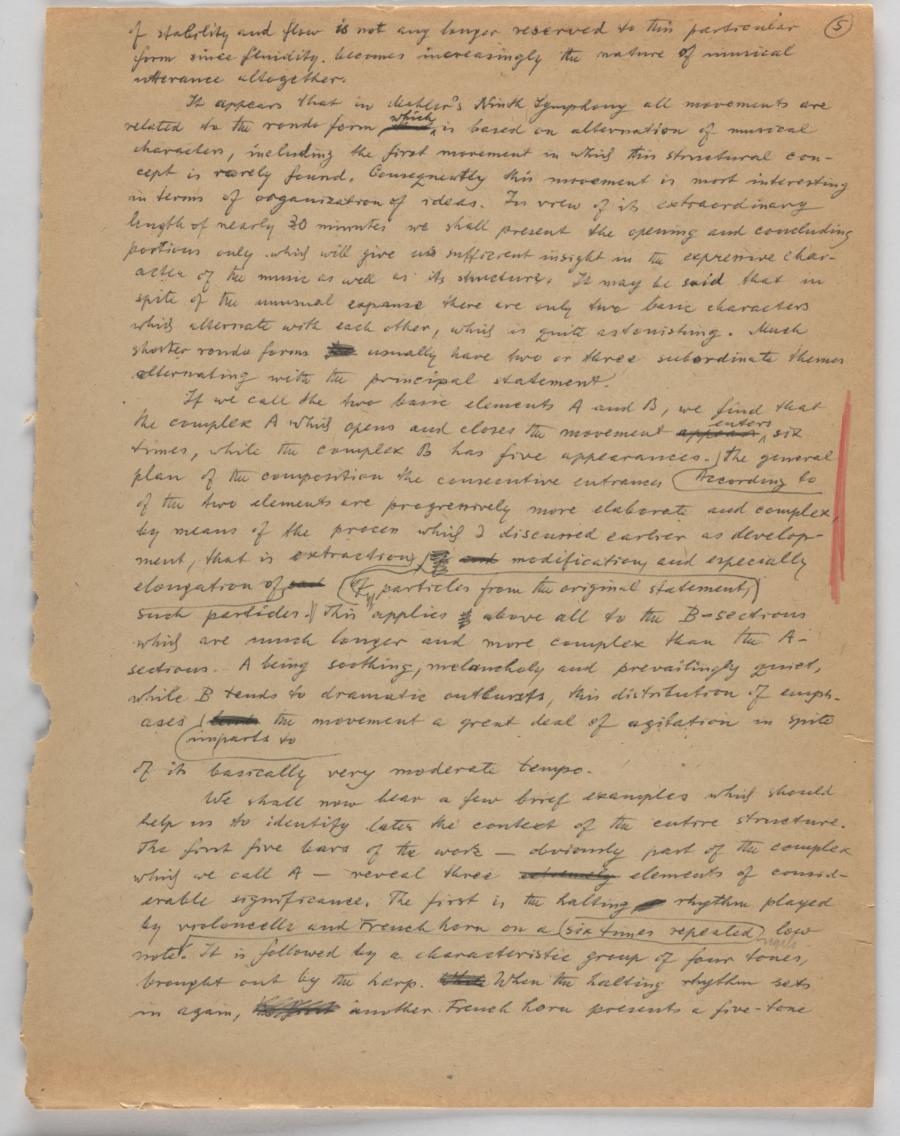 of stability and flow is not any longer reserved to this particular 5
form since fluidity. becomes increasingly the nature of musical
utterance altogether.
It appears that in Mahler's Ninth Symphony all movements are
related to the rondo form which is based on alternation of musical
characters, including the first movement in which this structural con-
cept is rarely found. Consequently this movement is most interesting
in terms of organization of ideas. In view of its extraordinary
length of nearly 30 minutes we shall present the opening and concluding
portions only which will give us sufficient insight in the expressive char-
acter of the music as well as its structure. It may be said that in
spite of the unusual expanse there are only two basic characters
which alternate with each other, which is quite astonishing. Much
shorter rondo forms usually have two or three subordinate themes
alternating with the principal statement.
If we call the two basic elements A and B, we find that
the complex A which opens and closes the movement appears enters six
times, while the complex B has five appearances. the general
plan of the composition the consecutive entrances According to
of the two elements are progressively more elaborate and complex,
by means of the process which I discussed earlier as develop-
ment, that is extraction, and modification, and especially
elongation of of particles from the original statement,
such particles. This applies above all to the B-sections
which are much longer and more complex than the A-
sections. A being soothing, melancholy and prevailingly quiet,
while B tends to dramatic outbursts, this distribution of emph-
ases the movement a great deal of agitation in spite
imparts to
of its basically very moderate tempo.
We shall now hear a few brief examples which should
help us to identify later the context of the entire structure.
The first five bars of the work — obviously part of the complex
which we call A — reveal three extremely elements of consid-
erable significance. The first is the halting rhythm played
by violoncello and French horn on a six times repeated low
note. It is followed by a characteristic group of four tones,
brought out by the harp. When the halting rhythm sets
in again, another French horn presents a five-tone